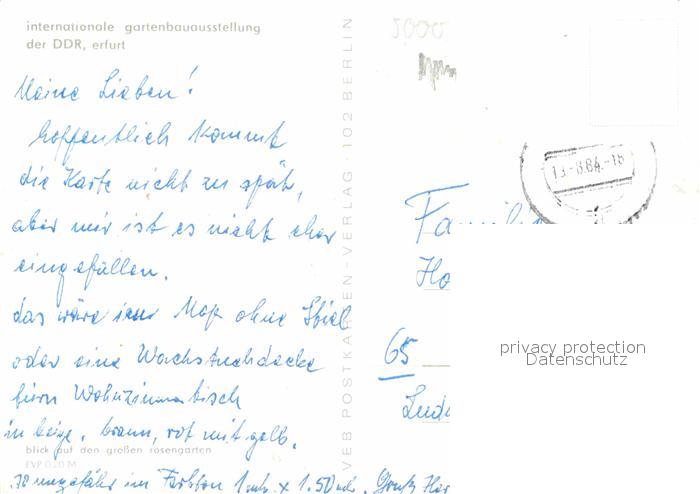 internationale gartenbauausstellung
der DDR, erfurt
Meine Lieben!
hoffentlich kommt
die Karte nicht zu spät,
aber mir ist es nicht eher
eingefallen.
das wäre ein Mop ohne Stiel
oder eine Wachstuchdecke
fürn Wohnzimmertisch
in beige, braun, rot mit gelb.
blick auf den großen rosengarten
EVP 0,20 M
so ungefähr im Farbton 1 mtr. x 1.50 mtr. Gruß
VEB POSTKARTEN-VERLAG · 102 BERLIN
5000
13.-8.84.-18
Fa
Ho
65
privacy protection
Datenschutz